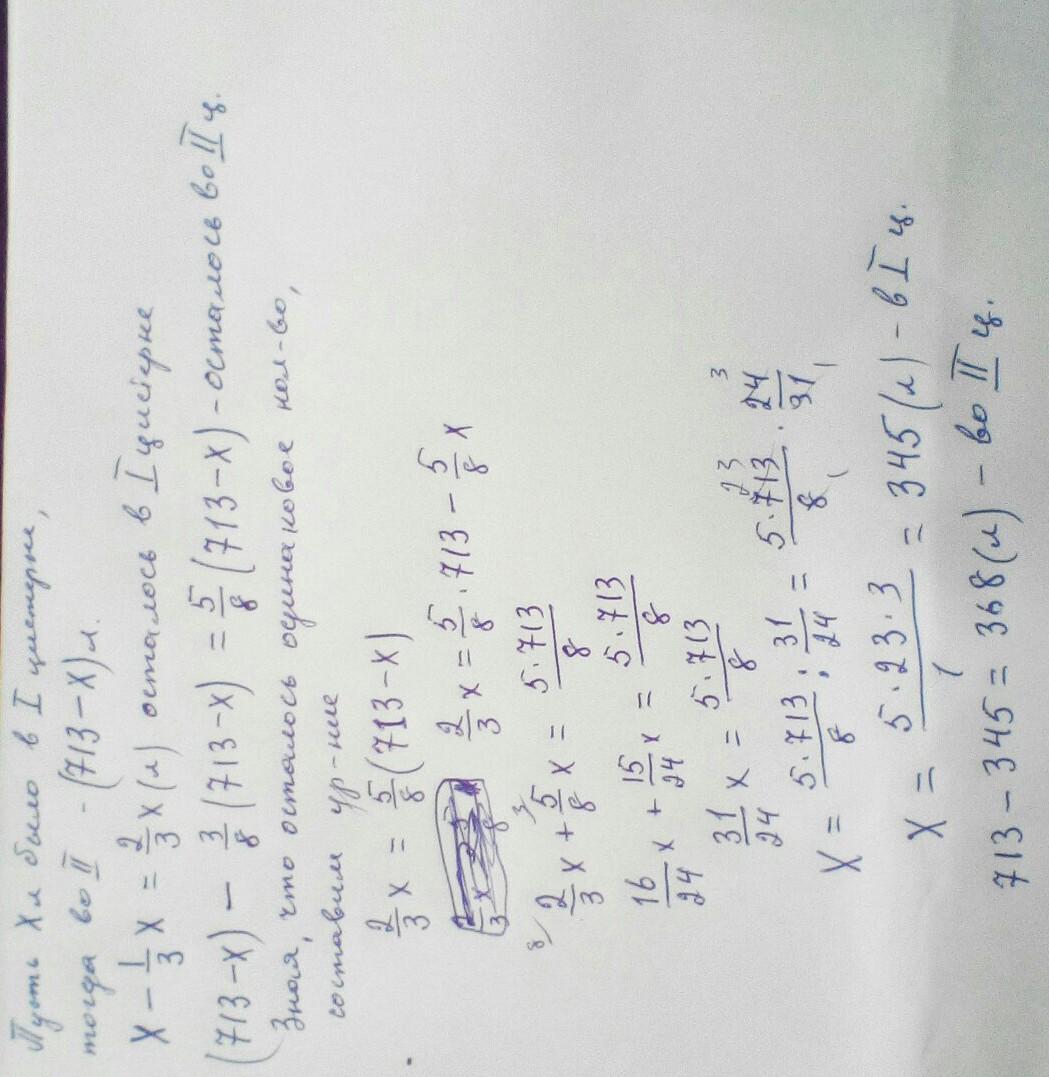 Пусть X л было в I цистерне,
тогда во II - (713 - X) л.
X - 1/3 X = 2/3 X (л) осталось в I цистерне
(713 - X) - 3/8 (713 - X) = 5/8 (713 - X) - осталось во II ц.
Зная, что осталось одинаковое кол-во,
составим ур-ние
2/3 X = 5/8 (713 - X)
2/3 X = 5/8 · 713 - 5/8 X
8/ 2/3 X + 3/ 5/8 X = 5·713/8
16/24 X + 15/24 X = 5·713/8
31/24 X = 5·713/8
X = 5·713/8 : 31/24 = 5·713 23/8 1 · 24 3/31 1
X = 5·23·3/1 = 345 (л) - в I ц.
713 - 345 = 368 (л) - во II ц.